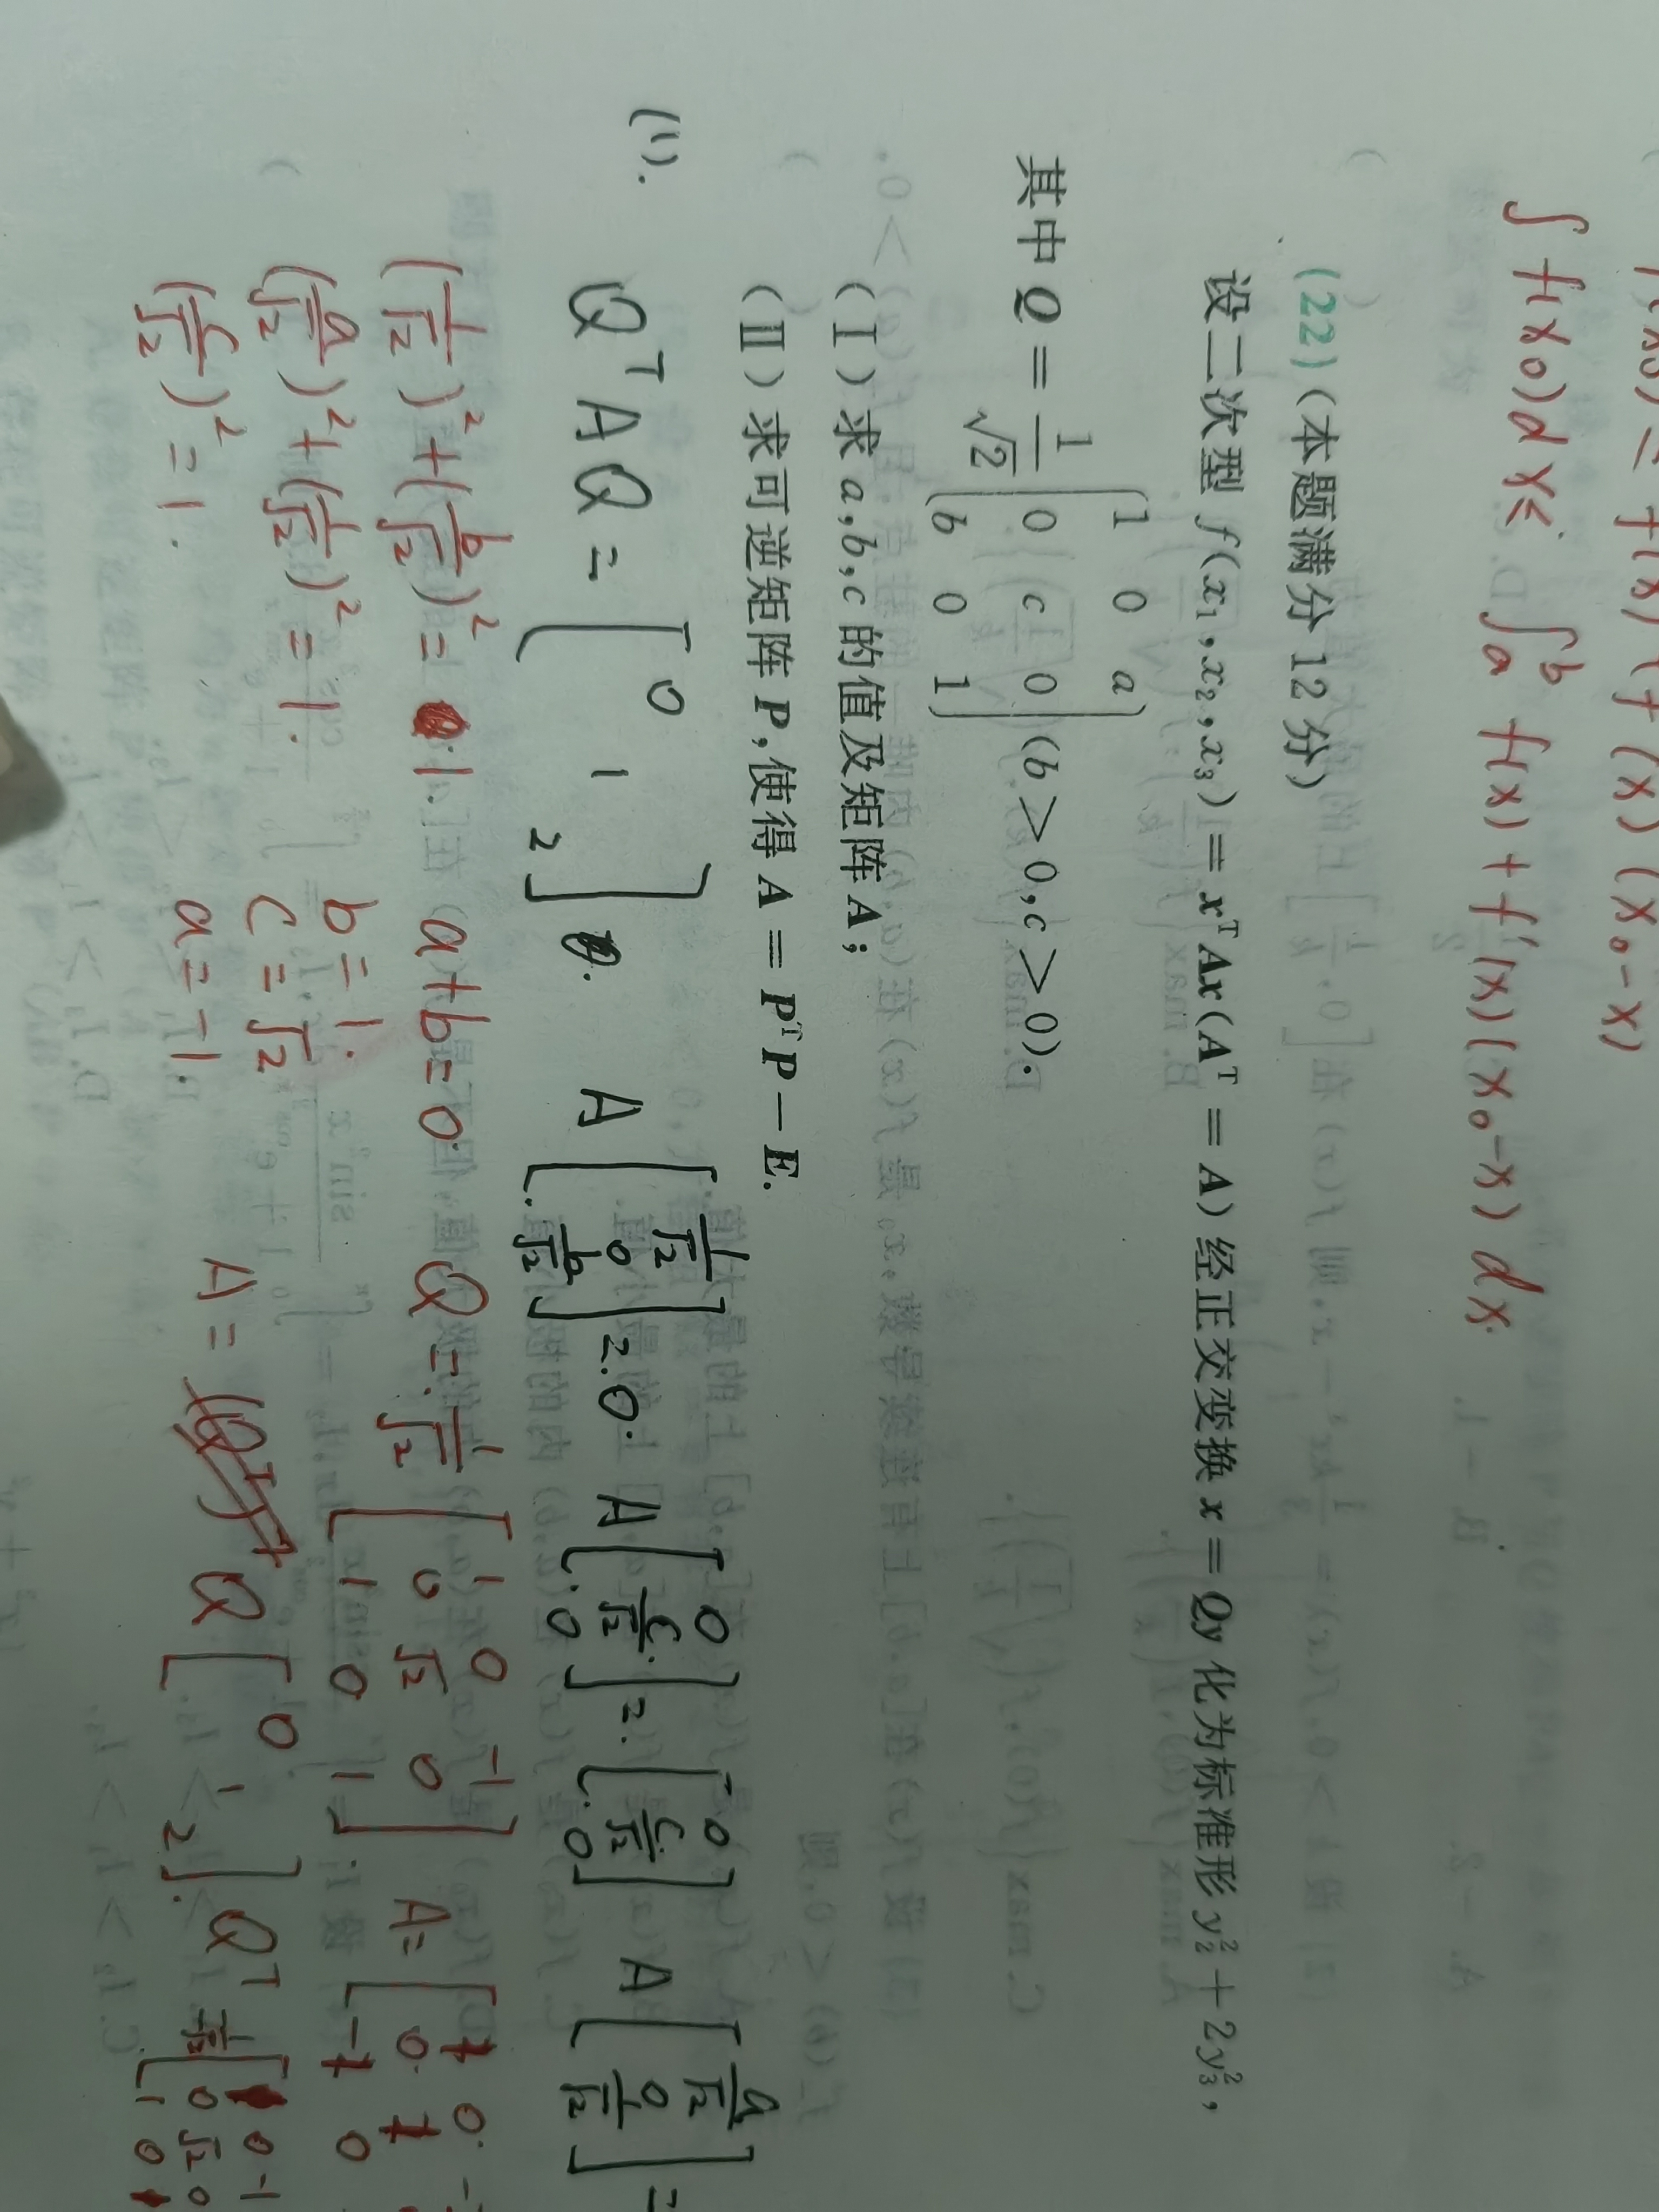 ∫ f(x₀)dx ≤ ∫ₐᵇ f(x) + f'(x)(x₀-x) dx.
(22)(本题满分 12 分)
设二次型 f(x₁,x₂,x₃) = xᵀAx(Aᵀ = A) 经正交变换 x = Qy 化为标准形 y₂² + 2y₃²,
其中 Q = 1/√2 (1 0 a; 0 c 0; b 0 1) (b > 0,c > 0).
(Ⅰ)求 a,b,c 的值及矩阵 A;
(Ⅱ)求可逆矩阵 P,使得 A = PᵀP — E.
(1). QᵀAQ = [0 1 2] A [1/√2; 0; b/√2] = 0. A [0; c/√2; 0] = [0; c/√2; 0] A [a/√2; 0; 1/√2] =
(1/√2)² + (b/√2)² = 1. a+b=0. Q = 1/√2 [1 0 -1; 0 √2 0; 1 0 1] A =
(a/√2)² + (1/√2)² = 1. b=1.
(c/√2)² = 1. c=√2
a=-1. A = Q [0 1 2] Qᵀ